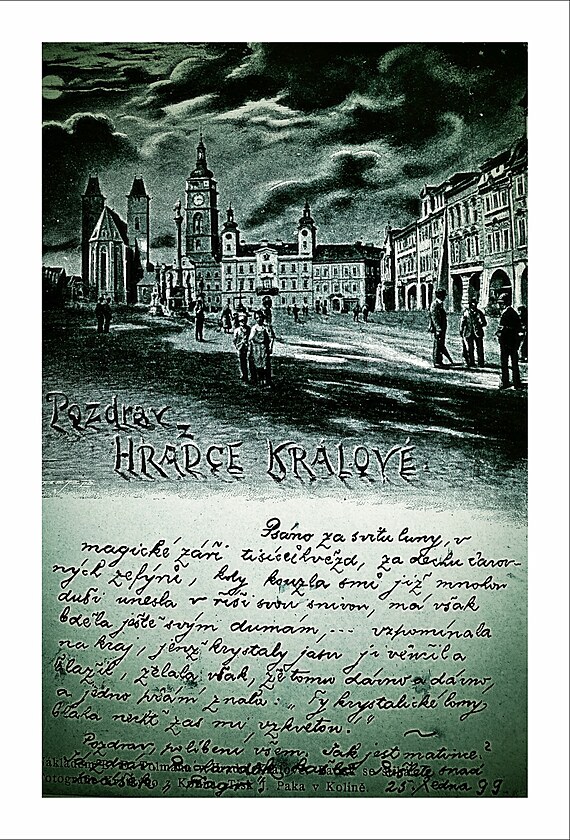 Pozdrav z
HRADCE KRÁLOVÉ.
Psáno za svitu luny, v
magické záři tisíce hvězd, za dechu čarov-
ných zefýrů, kdy kouzla snů již mnohou
duši unesla v říši svou snivou, má však
bděla ještě svým dumám, ... vzpomínala
na kraj, jenž krystaly jasu jí věnčil a
blažil, želala však, že tomu dávno a dávno,
a jedno přání znala: „Ty krystalické lomy
blaha nechť zas mi vzkvetou!"
Pozdrav, políbení všem. Jak jest matince?
Pozdrav
v Kolíně. 25. ledna 99.